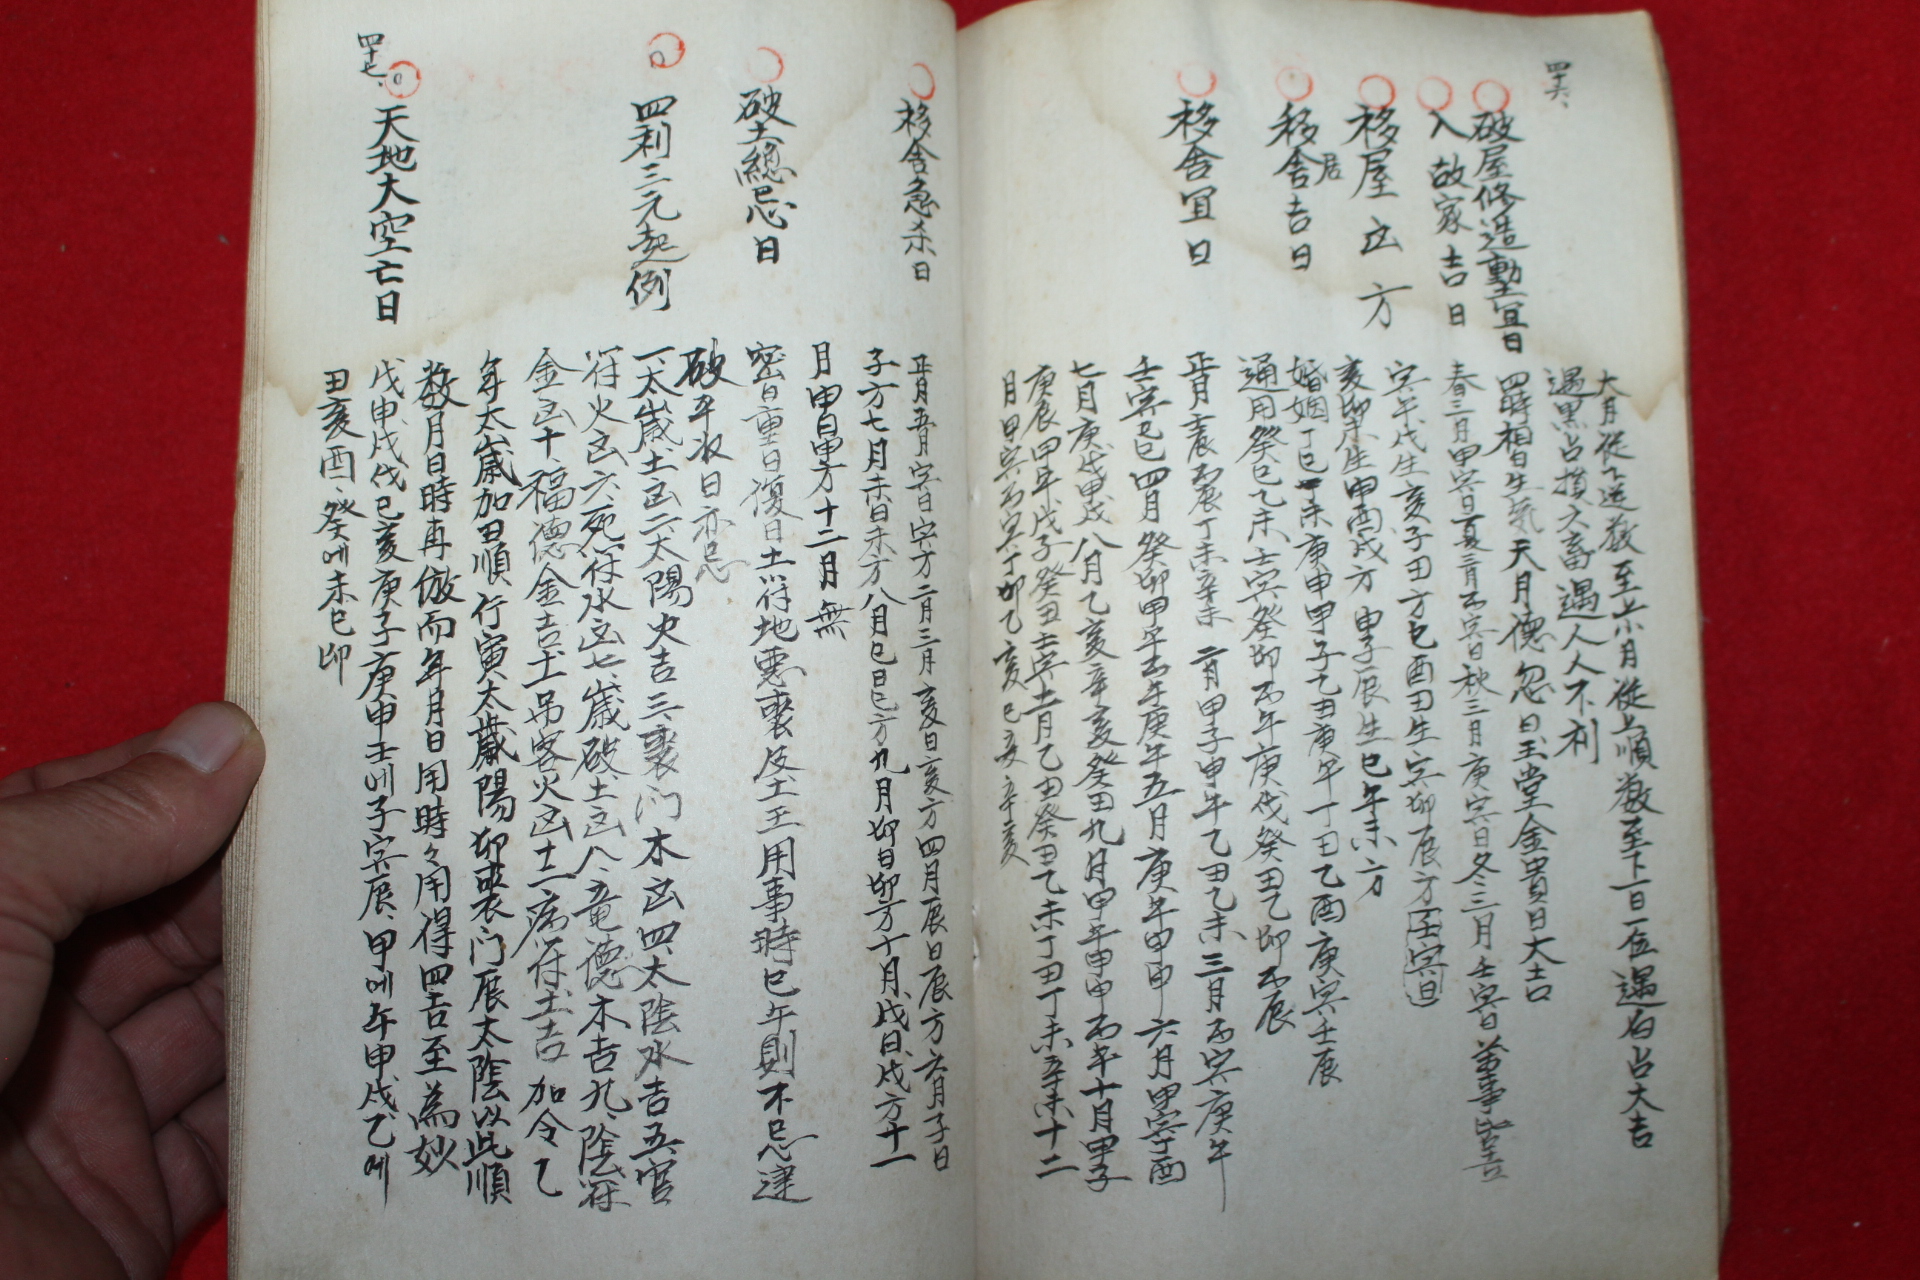 四十六、
大月從下逆數至上小月從上順數至下一日一位遇白占大吉
遇黑占損六畜遇人人不利
破屋修造動宜日
四時相日生氣天月德忽日玉堂金貴日大吉
入故家吉日
春三月甲寅日夏三月丙寅日秋三月庚寅日冬三月壬寅日萬事皆吉
移屋凶方
寅午戌生亥子丑方巳酉丑生寅卯辰方 壬寅日
亥卯未生申酉戌方申子辰生巳午未方
移舍居吉日
婚姻丁巳 未庚申甲子乙丑庚午丁丑乙酉庚寅壬辰
通用癸巳乙未壬寅癸卯丙午庚戌癸丑乙卯丙辰
移舍宜日
正月壬辰丙辰丁未辛未二月甲子甲午乙丑乙未三月丙寅庚午
壬寅己巳四月癸卯甲午丙午庚午五月庚午甲申六月甲寅丁酉
七月庚戌甲戌八月乙亥辛亥癸丑九月甲午甲申丙午十月甲子
庚辰甲午戊子癸丑壬寅十一月乙丑癸丑乙未丁丑丁未辛未十二
月甲寅丙寅丁卯乙亥己亥辛亥
移舍急杀日
正月五月寅日寅方二月三月亥日亥方四月辰日辰方六月子日
子方七月未日未方八月巳日巳方九月卯日卯方十月戌日戌方十一
月申日申方十二月無
破土總忌日
密日重日復日土符地惡裏及土王用事時巳午則不忌建
破平收日亦忌
四利三元起例
一、太歲土凶二太陽火吉三、喪门木凶四、太陰水吉五、官
符火凶六、死符水凶七、歲破土凶八、竜德木吉九、陰符
金凶十、福德金吉土吊客火凶十二病符土吉加令乙
年太歲加丑順行寅太歲陽卯喪门辰太陰以此順
數月日時再倣而年月日用時々用得四吉至為妙
四十七、
天地大空亡日
戊申戊戌己亥庚子庚申壬 子寅辰、甲 午甲戌乙
丑亥酉、癸 未巳卯